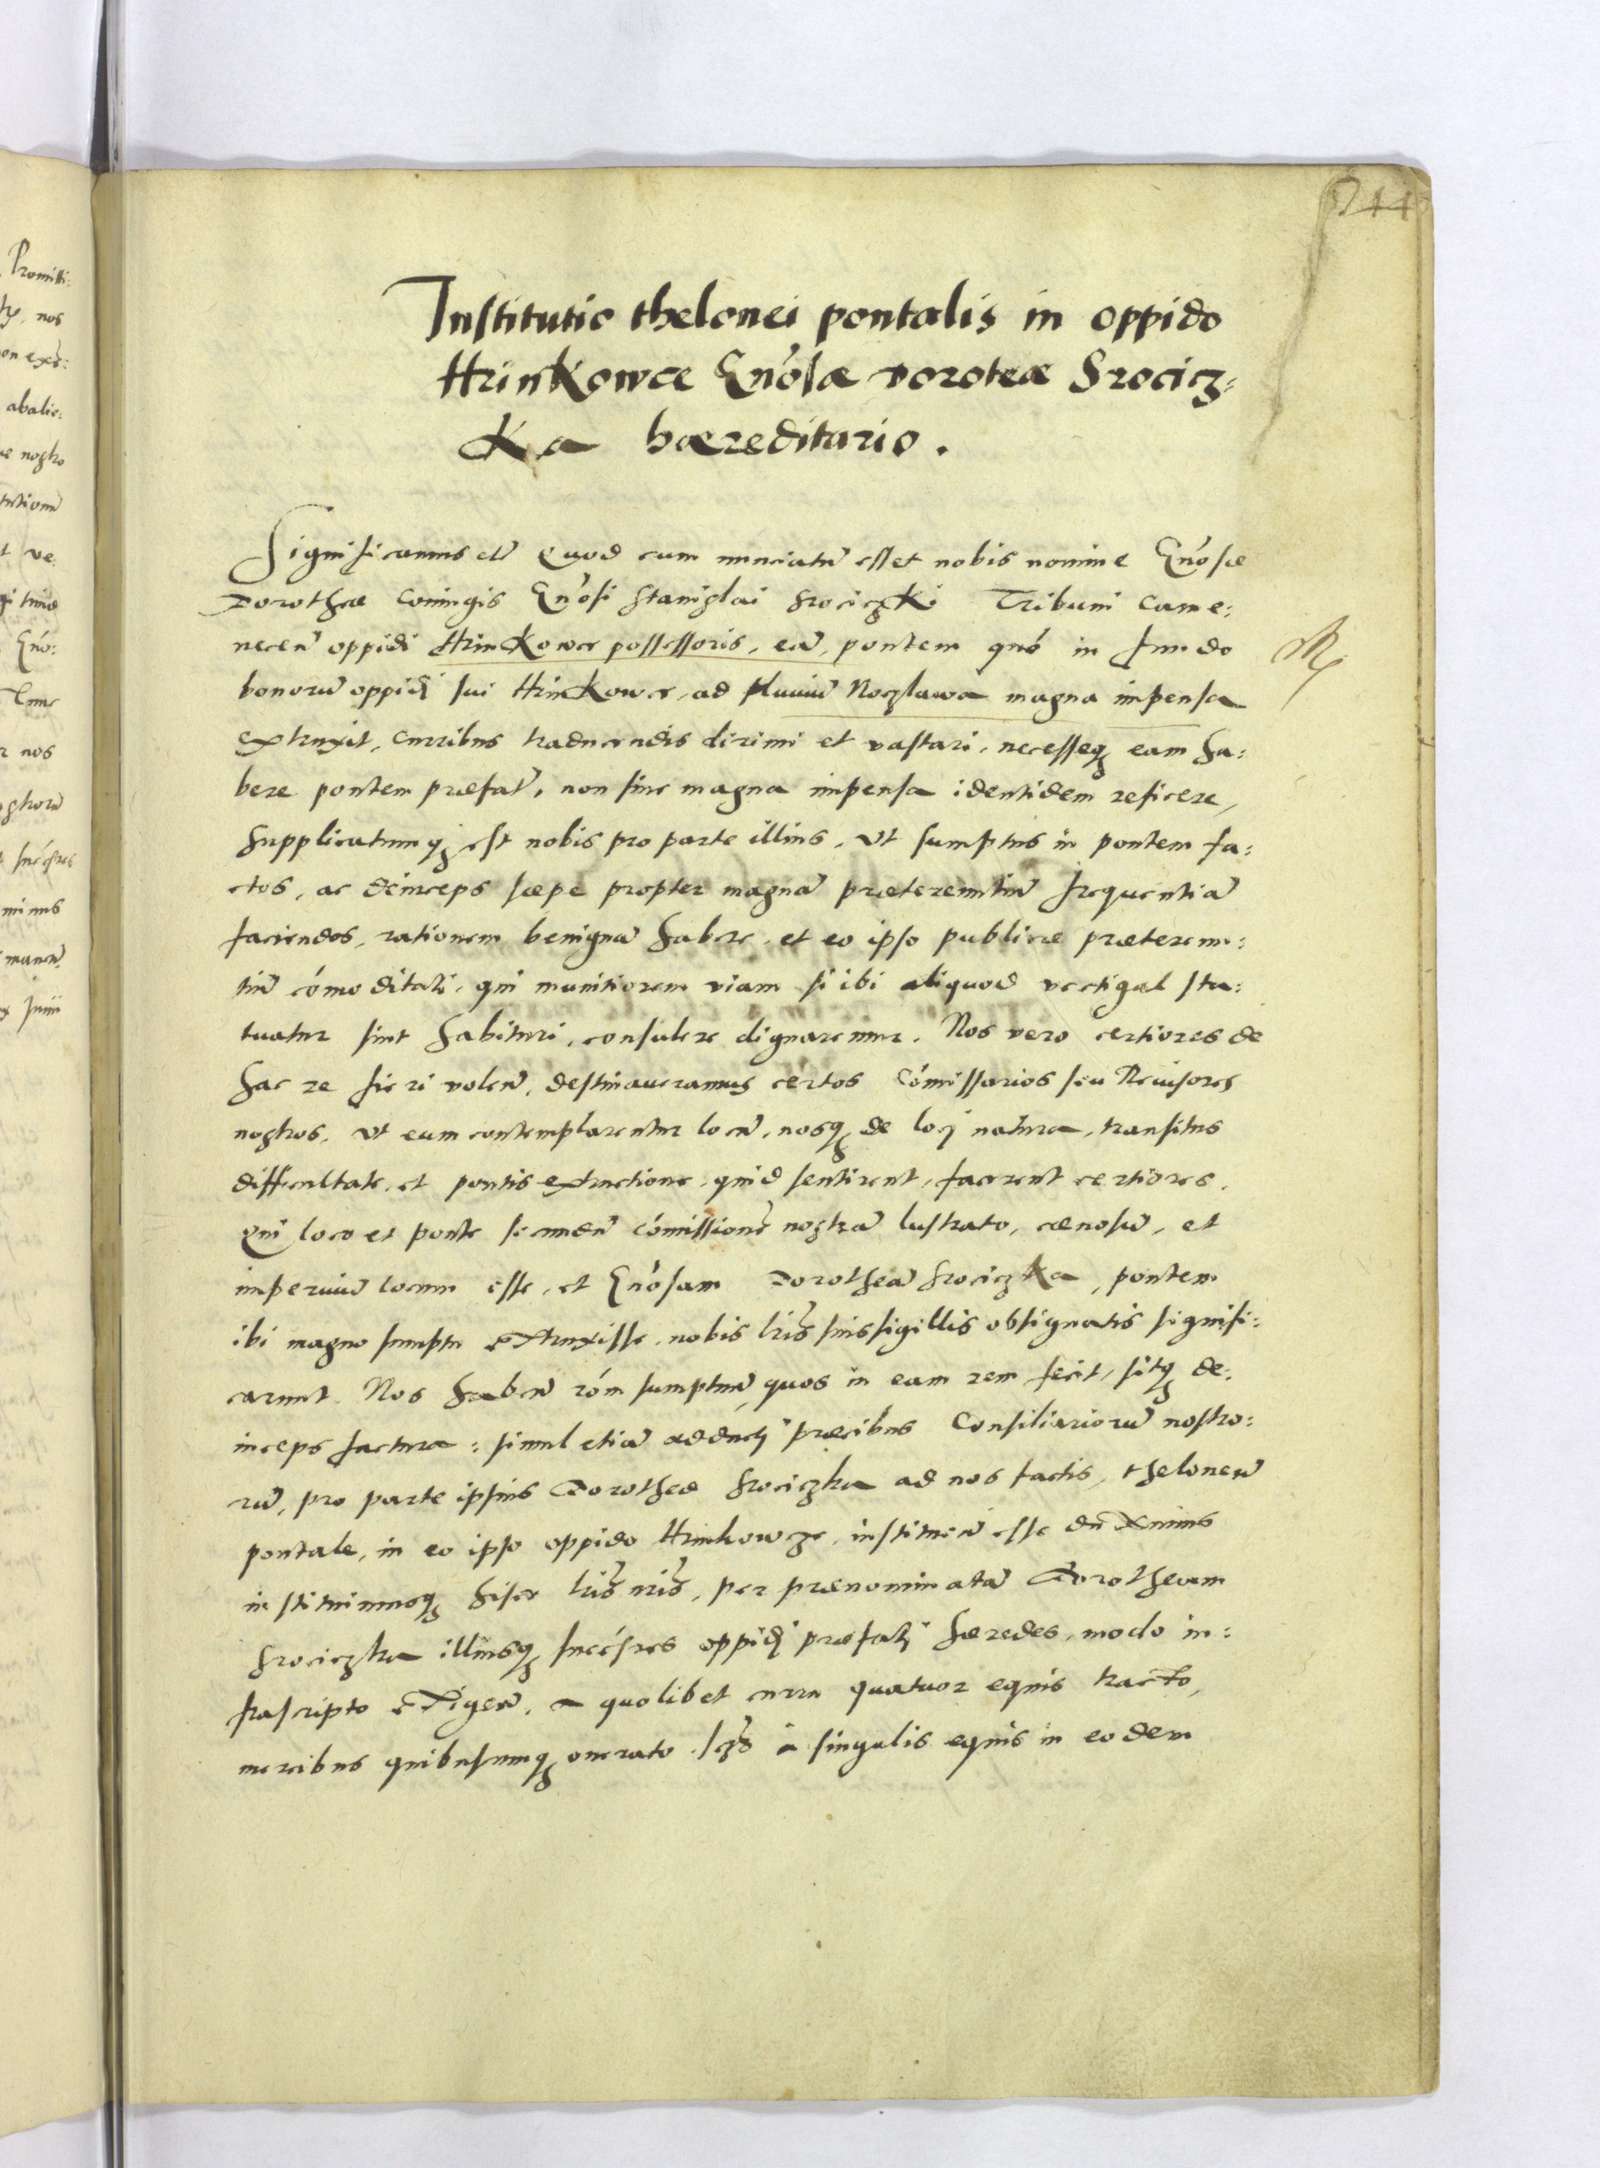 244
Institutio thelonei pontalis in oppido
Hrinkowce Gn̄osæ Doroteæ Srocicz=
ka hæreditario.
Significamus etc̃ Quod cum nunciatũ esset nobis nomine Gn̄osæ
Dorotheæ Coniugis Gn̄osi Stanislai Srociczki Tribuni Came:
necen̄ oppidi Hrinkowce possessoris, eã, pontem quẽ in fundo
bonorũ oppidi sui Hrinkowce, ad fluuiũ Noczlawa magna impensa
extruxit, curribus traducendis dirimi et vastari, necesseq3 eam ha:
bere pontem præfat̃, non sine magna impensa identidem reficere,
Supplicatumq3 est nobis pro parte illius, vt sumptus in pontem fa:
ctos, ac deinceps sæpe propter magnã prætereuntiũ frequentiã
faciendos, rationem benignã habere, et eo ipso publicæ prætereun:
tiũ cómoditati, qui munitiorem viam si ibi aliquod vectigal sta:
tuatur sint habituri, consulere dignaremur. Nos vero certiores de
hac re fieri volen̄, destinaueramus certos Cómissarios seu Reuisores
nostros, vt eum contemplarentur locũ, nosq3 de loci natura, transitus
difficultate, et pontis extructione, quid sentirent, facerent certiores.
Qui loco et ponte secundũ cómissionẽ nostrã lustrato, cænosũ, et
imperuiũ locum esse, et Gn̄osam Dorotheã Srociczka, pontem
ibi magno sumptu extruxisse, nobis lr̃is suis sigillis obsignatis signifi:
carunt. Nos haben̄ rõm sumptuũ, quos in eam rem fecit, sitq3 de:
inceps factura: simul etiã adducti præcibus Consiliariorũ nostro:
rũ, pro parte ipsius Dorotheæ Srociczka ad nos factis, theloneũ
pontale, in eo ipso oppido Hrinkowcze, instituen̄ esse duximus
instituimusq3 hisce lr̃is nr̃is, per prænominatã Dorotheam
Srociczka illiusq3 succéssores oppidi præfati hæredes, modo in:
frascripto exigen̄, a quolibet curru quatuor equis tracto,
mercibus quibuscumq3 onerato, a singulis equis in eodem